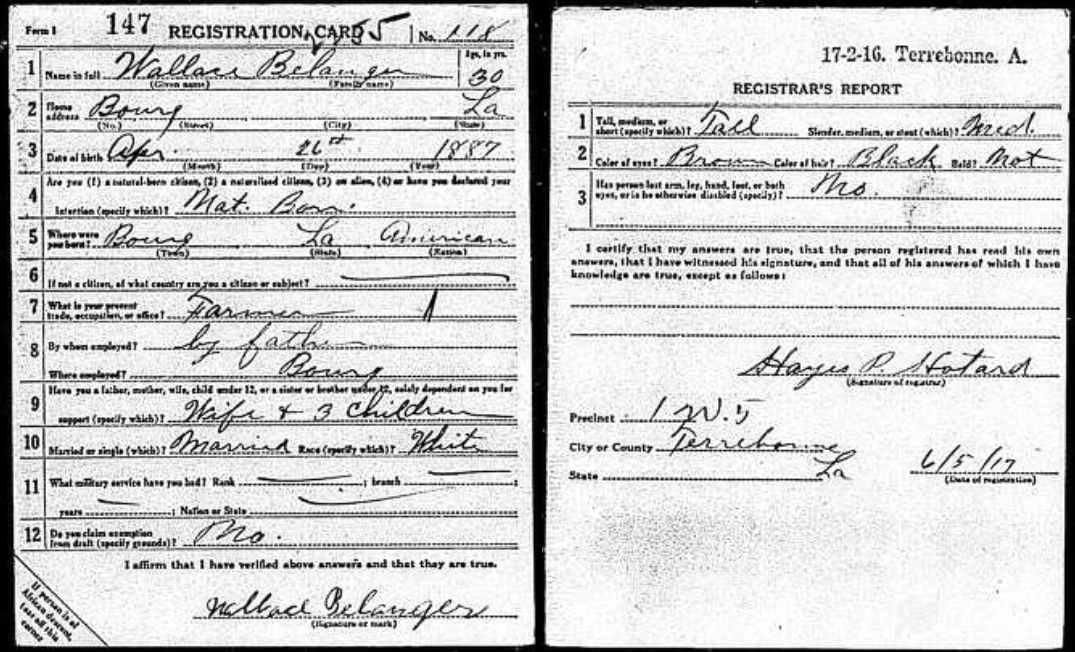 Form 1 147 REGISTRATION CARD No. 118
1 Name in full Wallace Belanger Age, in yrs. 30
(Given name) (Family name)
2 Home address Bourg La
(No.) (Street) (City) (State)
3 Date of birth Apr. 26th 1887
(Month) (Day) (Year)
4 Are you (1) a natural-born citizen, (2) a naturalized citizen, (3) an alien, (4) or have you declared your
intention (specify which)? Nat. Born.
5 Where were you born? Bourg La American
(Town) (State) (Nation)
6 If not a citizen, of what country are you a citizen or subject?
7 What is your present trade, occupation, or office? Farmer
8 By whom employed? by father
Where employed? Bourg
9 Have you a father, mother, wife, child under 12, or a sister or brother under 12, solely dependent on you for
support (specify which)? Wife + 3 children
10 Married or single (which)? Married Race (specify which)? White
11 What military service have you had? Rank ; branch ;
years ; Nation or State
12 Do you claim exemption from draft (specify grounds)? No.
I affirm that I have verified above answers and that they are true.
Wallace Belanger
(Signature or mark)
If person is of
African descent,
tear off this
corner
17-2-16. Terrebonne. A.
REGISTRAR'S REPORT
1 Tall, medium, or short (specify which)? Tall Slender, medium, or stout (which)? Med.
2 Color of eyes? Brown Color of hair? Black Bald? Not
3 Has person lost arm, leg, hand, foot, or both eyes, or is he otherwise disabled (specify)? No.
I certify that my answers are true, that the person registered has read his own
answers, that I have witnessed his signature, and that all of his answers of which I have
knowledge are true, except as follows:
Hayes P. Hotard
(Signature of registrar)
Precinct 1 W. 5
City or County Terrebonne
State La 6/5/17
(Date of registration)